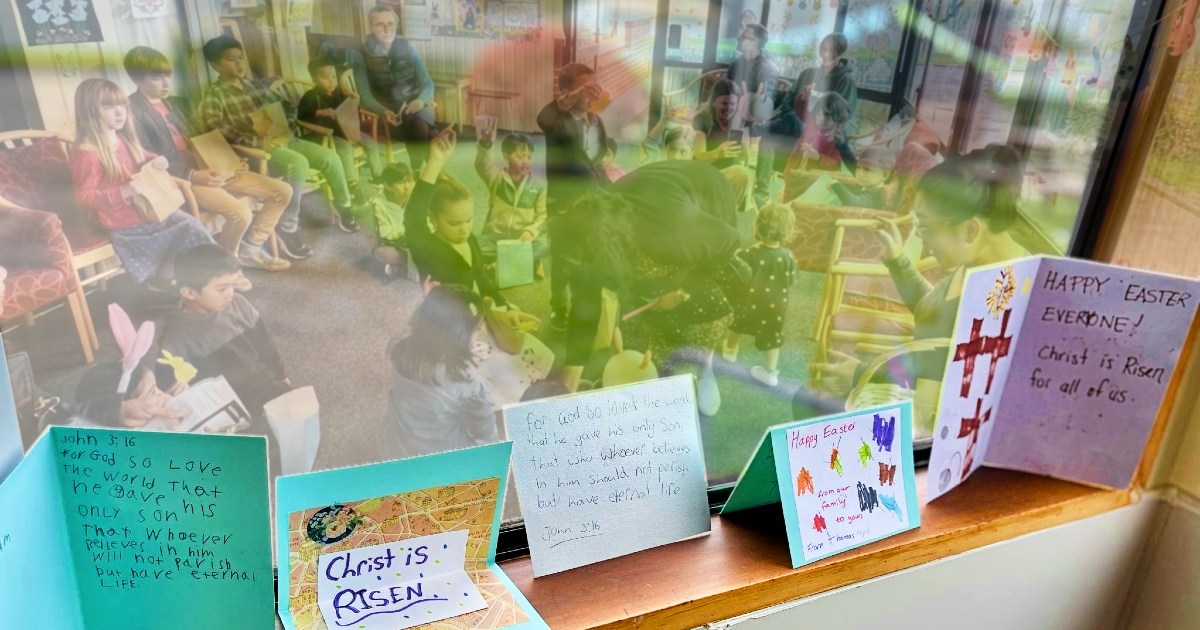 John 3:16
for God so LOVE
THE WORLD THAT
he gave his
ONLY SON
THAT WHOEVER
BELIEVES in him
Will not parish
but have eternal
LIFE
Christ is
RISEN.
For God so loved the world
that he gave his only Son,
that who whoever believes
in him should not perish
but have eternal life
John 3:16
Happy Easter
from our
family
to yours
From Thomas
HAPPY EASTER
EVERYONE!
Christ is Risen
for all of us.